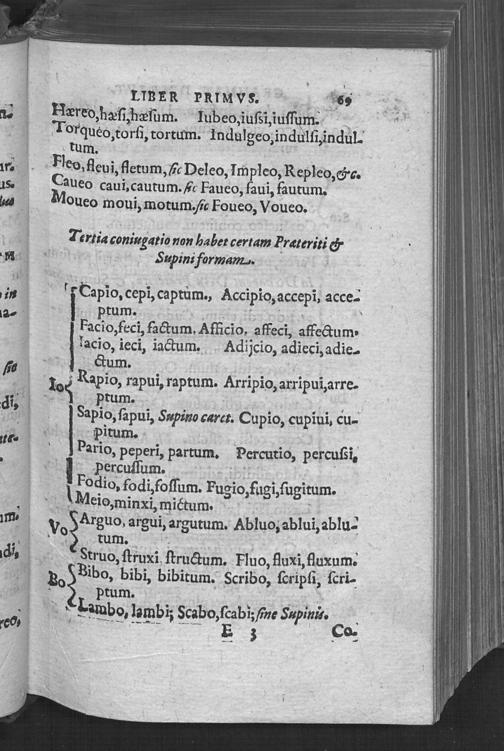 LIBER PRIMVS. 69
Hæreo, hæſi, hæſum. Iubeo, iuſsi, iuſſum.
Torqueo, torſi, tortum. Indulgeo, indulſi, indul-
tum.
Fleo, fleui, fletum, ſic Deleo, Impleo, Repleo, &c.
Caueo caui, cautum. ſic Faueo, faui, fautum.
Moueo moui, motum. ſic Foueo, Voueo.
Tertia coniugatio non habet certam Præteriti &
Supini formam.
Capio, cepi, captum., Accipio, accepi, acce-
ptum.
Facio, feci, factum. Afficio, affeci, affectum.
Iacio, ieci, iactum. Adijcio, adieci, adie-
ctum.
Rapio, rapui, raptum. Arripio, arripui, arre-
Io
ptum.
Sapio, ſapui, Supino caret. Cupio, cupiui, cu-
pitum.
Pario, peperi, partum. Percutio, percuſsi,
percuſſum.
Fodio, fodi, foſſum. Fugio, fugi, fugitum.
Meio, minxi, mictum.
Arguo, argui, argutum. Abluo, ablui, ablu-
Vo
tum.
Struo, ſtruxi, ſtructum. Fluo, fluxi, fluxum.
Bibo, bibi, bibitum. Scribo, ſcripſi, ſcri-
Bo
ptum.
Lambo, lambi; Scabo, ſcabi; ſine Supinis.
E 3 Co-